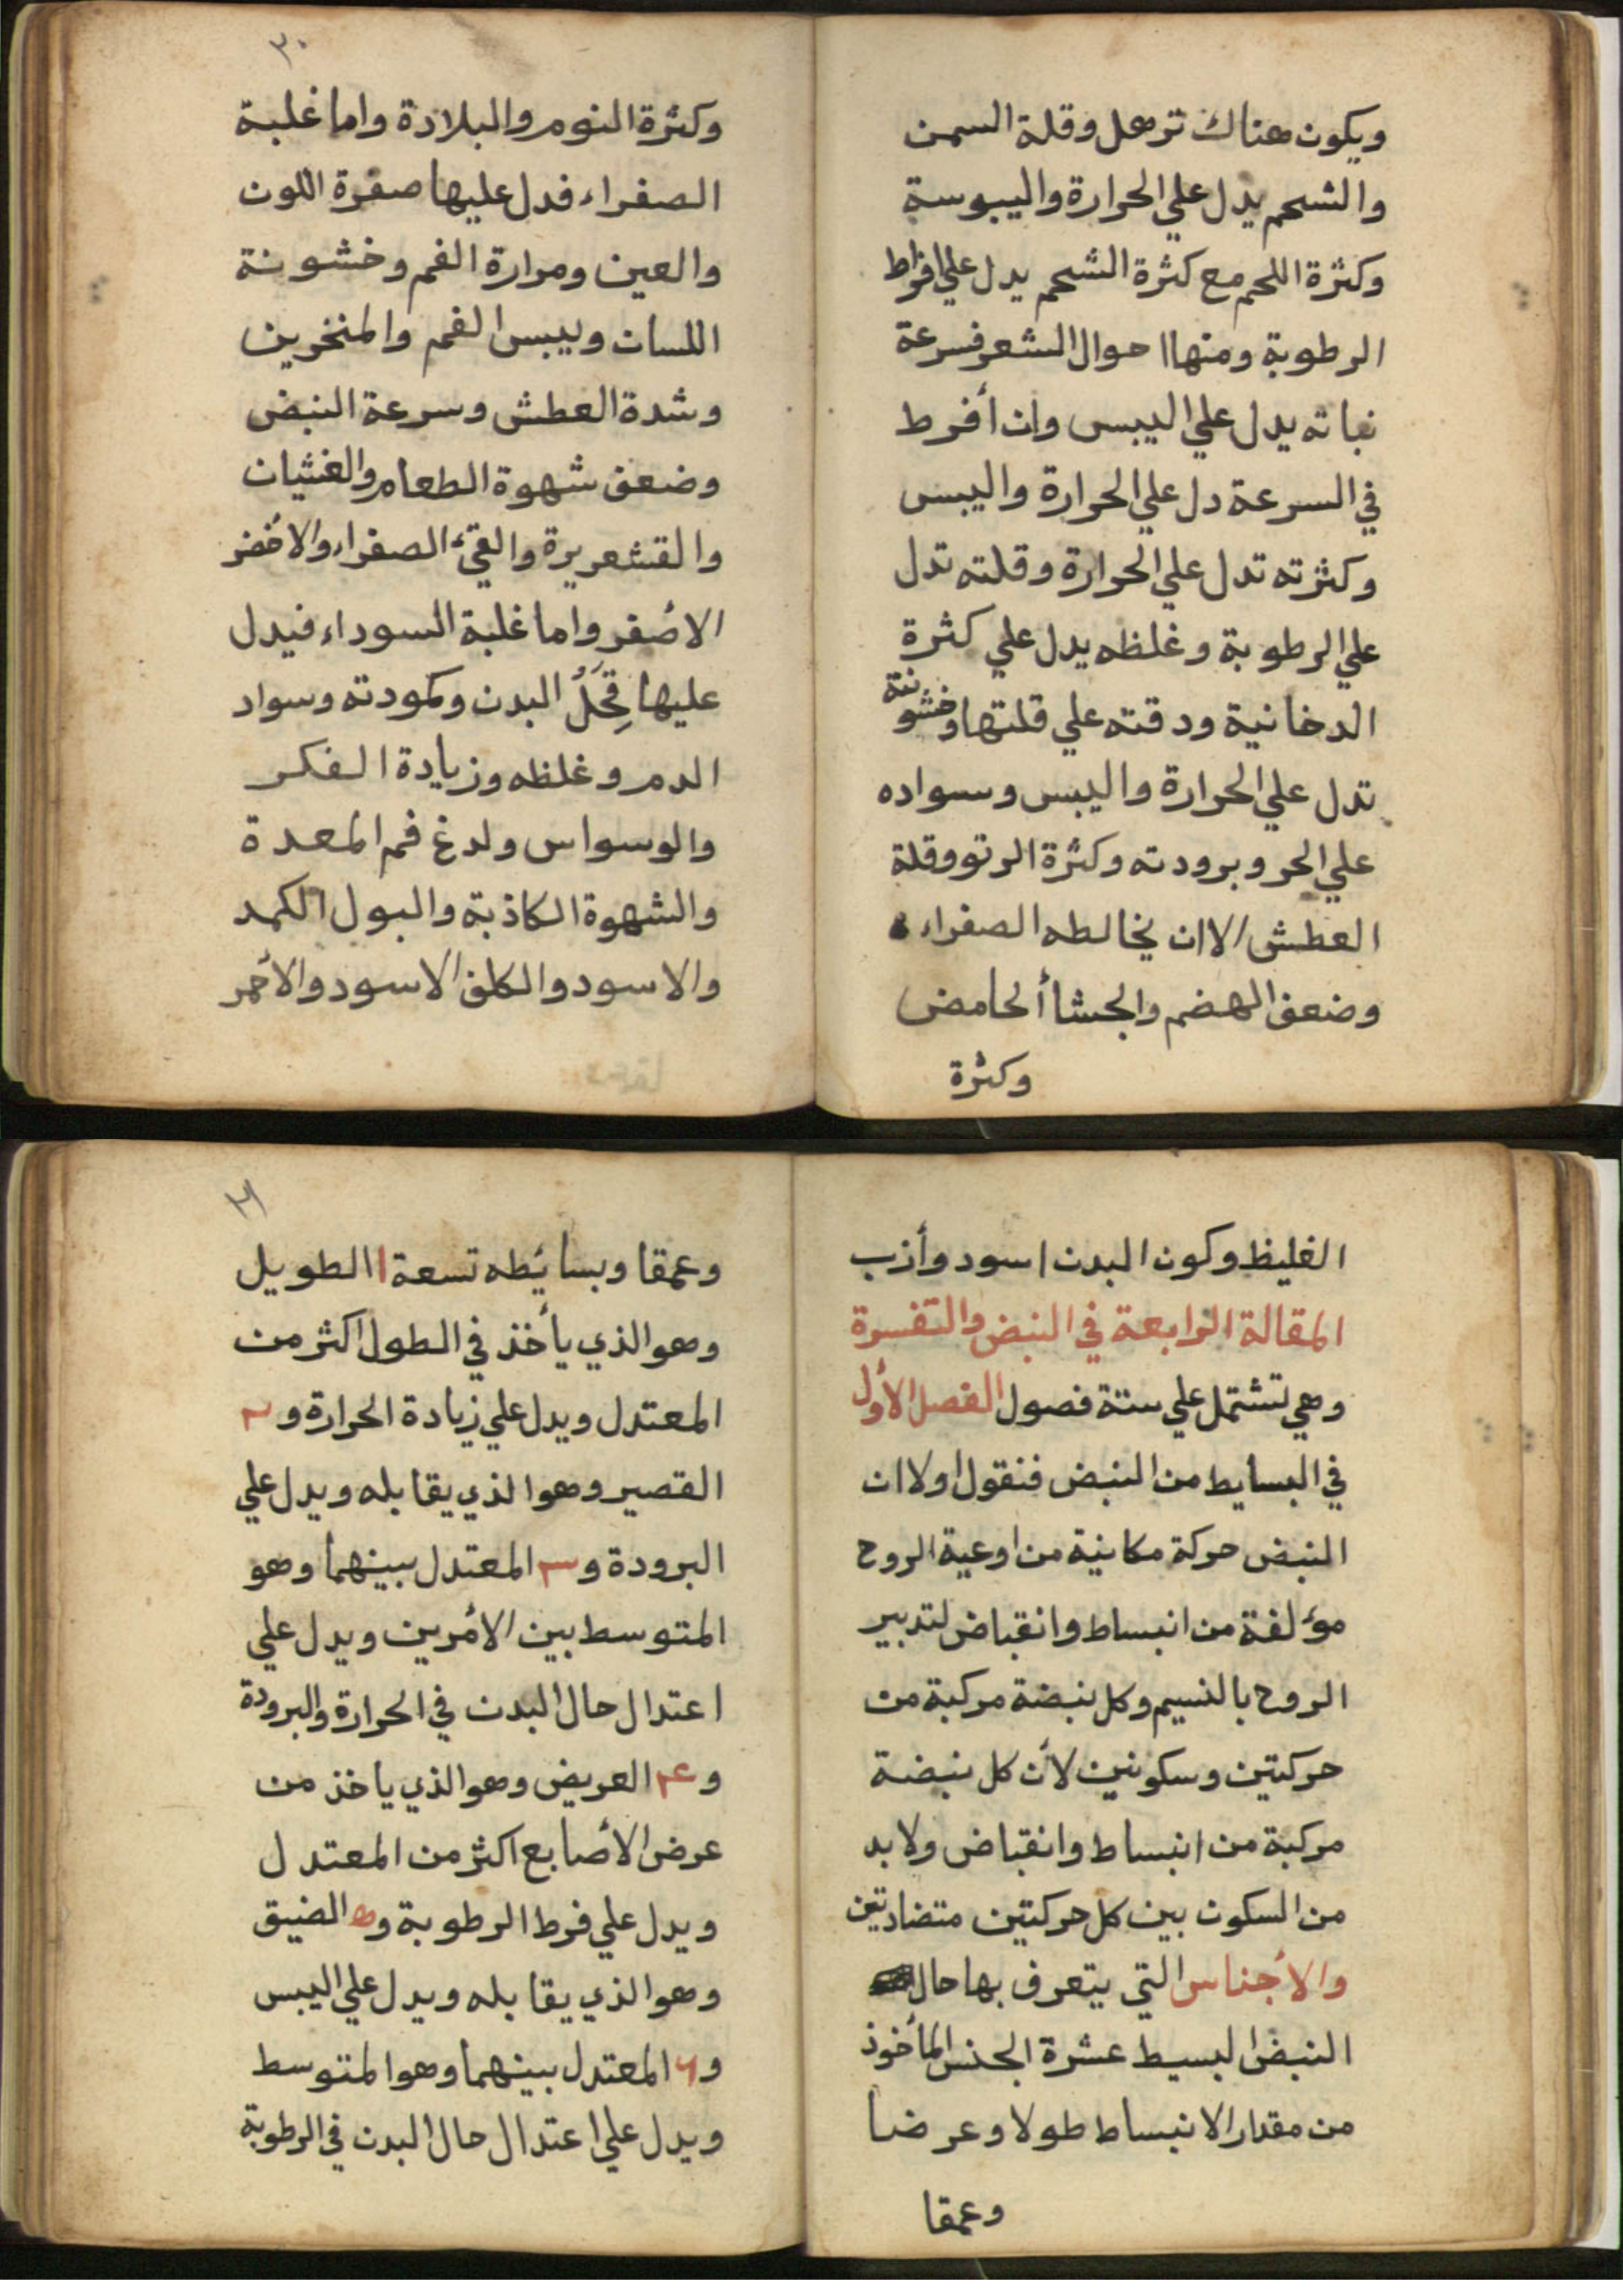 ويكون هناك ترهل وقلة السمن
والشحم يدل علي الحرارة واليبوسة
وكثرة اللحم مع كثرة الشحم يدل علي افراط
الرطوبة ومنها احوال الشعر فسرعة
نباته يدل علي اليبس وان أفرط
في السرعة دل علي الحرارة واليبس
وكثرته تدل علي الحرارة وقلته تدل
علي الرطوبة وغلظه يدل علي كثرة
الدخانية ودقته علي قلتها وخشونته
تدل علي الحرارة واليبس وسواده
علي الحر وبرودته وكثرة الرتو وقلة
العطش الا ان يخالطه الصفراء
وضعف الهضم والجشأ الحامض
وكثرة
٣٠
وكثرة النوم والبلادة واما غلبة
الصفراء فدل عليها صفرة اللون
والعين ومرارة الفم وخشونة
اللسان ويبس الفم والمنخرين
وشدة العطش وسرعة النبض
وضعف شهوة الطعام والغثيان
والقشعريرة والقئ الصفراء والأخضر
الأصفر واما غلبة السوداء فيدل
عليها قِحَلُ البدن وكمودته وسواد
الدم وغلظه وزيادة الفكر
والوسواس ولدغ فم المعدة
والشهوة الكاذبة والبول الكمد
والاسود والكلف الاسود والأحمر
الغليظ وكون البدن اسود وأزب
المقالة الرابعة في النبض والتفسرة
وهي تشتمل علي ستة فصول الفصل الأول
في البسايط من النبض فنقول اولا ان
النبض حركة مكانية من اوعية الروح
مؤلفة من انبساط وانقباض لتدبير
الروح بالنسيم وكل نبضة مركبة من
حركتين وسكونين لأن كل نبضة
مركبة من انبساط وانقباض ولا بد
من السكون بين كل حركتين متضادتين
والأجناس التي يتعرف بها حال
النبض البسيط عشرة الجنس المأخوذ
من مقدار الانبساط طولا وعرضا
وعمقا
٣١
وعمقا وبسائطه تسعة ١ الطويل
وهو الذي يأخذ في الطول اكثر من
المعتدل ويدل علي زيادة الحرارة و٢
القصير وهو الذي يقابله ويدل علي
البرودة و٣ المعتدل بينهما وهو
المتوسط بين الأمرين ويدل علي
اعتدال حال البدن في الحرارة والبرودة
و٤ العريض وهو الذي ياخذ من
عرض الأصابع اكثر من المعتدل
ويدل علي فرط الرطوبة و٥ الضيق
وهو الذي يقابله ويدل علي اليبس
و٦ المعتدل بينهما وهو المتوسط
ويدل علي اعتدال حال البدن في الرطوبة